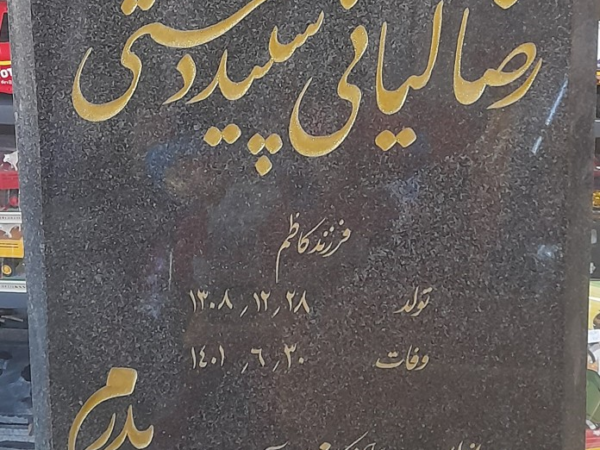 رضا کیانی سپیددشتی
فرزند کاظم
تولد ۱۳۰۸٫۱۲٫۲۸
وفات ۱۴۰۱٫۶٫۳۰
پدرم